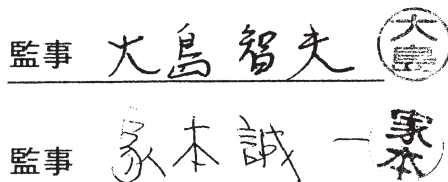 監事 大島智夫 大島
監事 家本誠一 家本